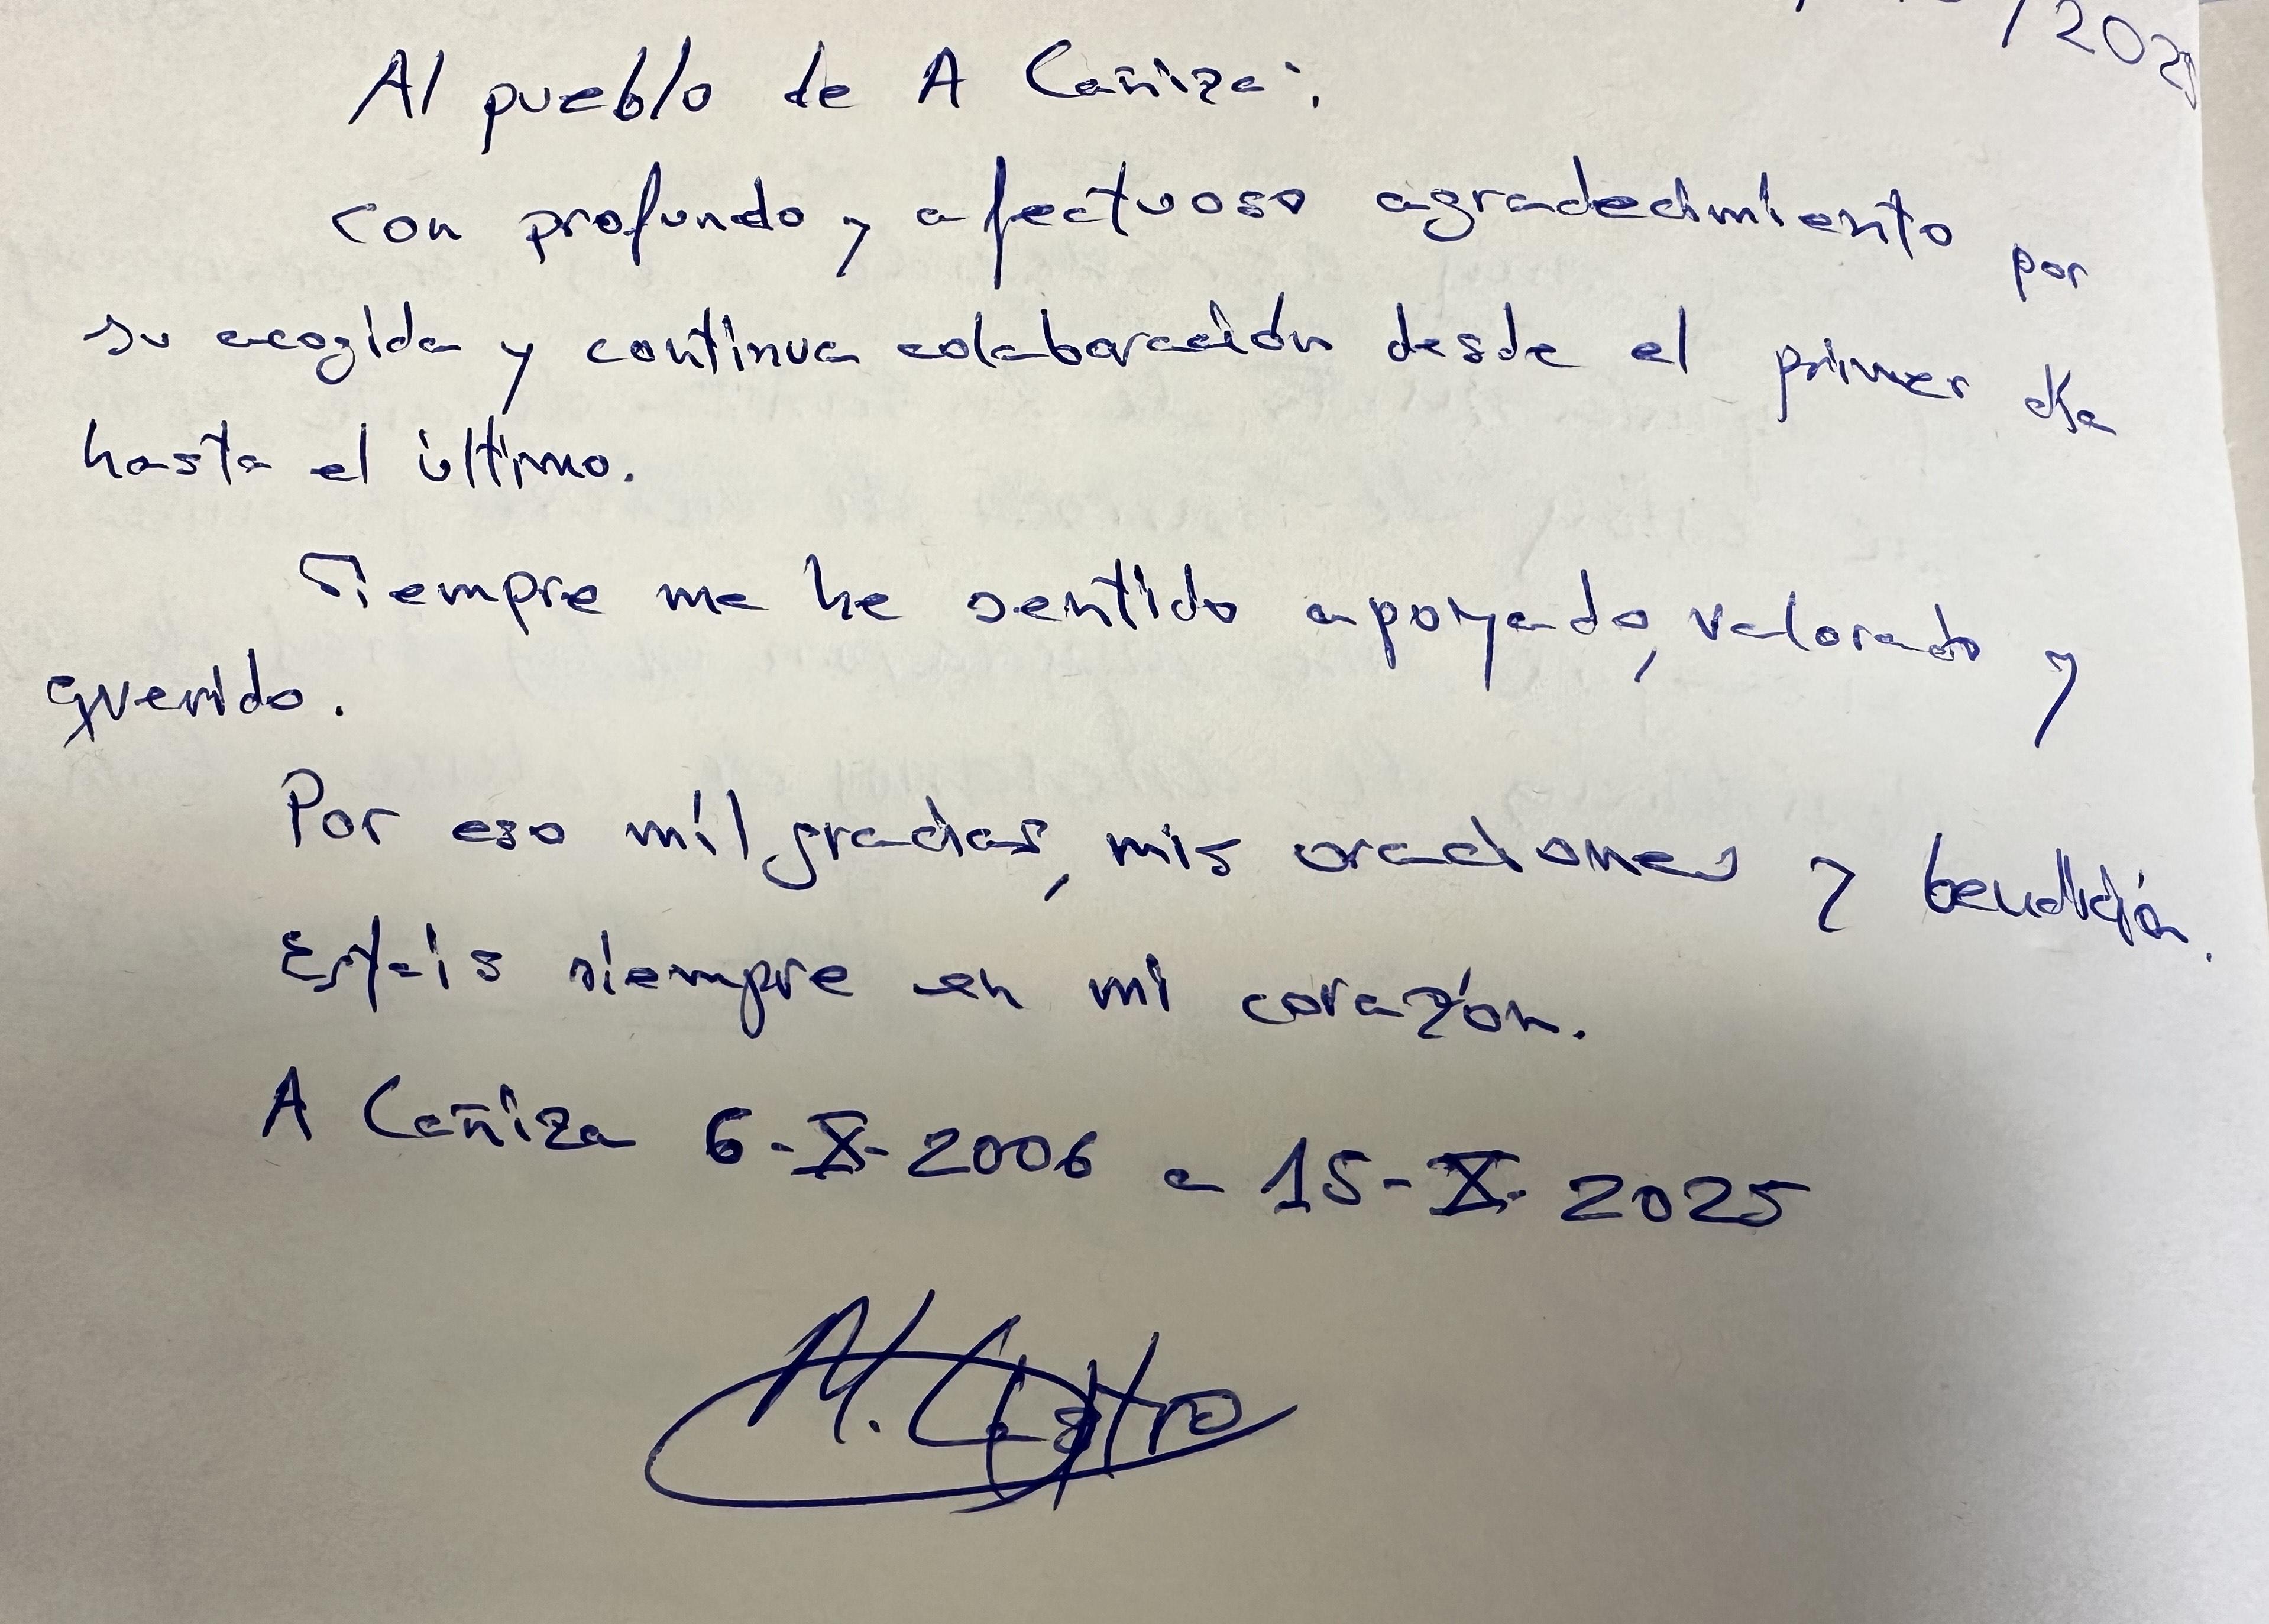 /202
Al pueblo de A Cañiza:
con profundo y afectuoso agradecimiento por
su acogida y continua colaboración desde el primer día
hasta el último.
Siempre me he sentido apoyado, valorado y
querido.
Por eso mil gracias, mis oraciones y bendición.
Estais siempre en mi corazón.
A Cañiza 6-X-2006 a 15-X-2025
M. Castro